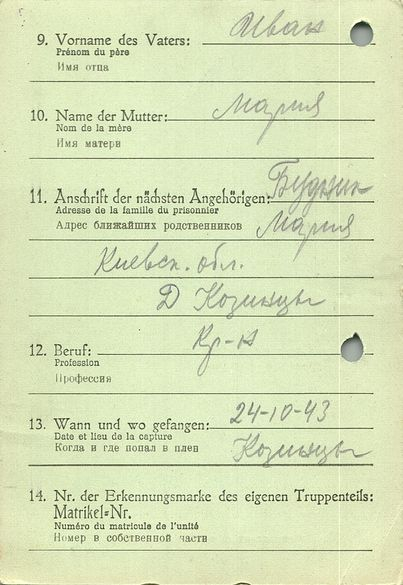 9. Vorname des Vaters: Иван
Prénom du père
Имя отца
10. Name der Mutter: Мария
Nom de la mère
Имя матери
11. Anschrift der nächsten Angehörigen: Будник
Adresse de la famille du prisonnier
Адрес ближайших родственников Мария
Киевск. обл.
Д Козинцы
12. Beruf: Кр-н
Profession
Профессия
13. Wann und wo gefangen: 24-10-43
Date et lieu de la capture
Когда и где попал в плен Козинцы
14. Nr. der Erkennungsmarke des eigenen Truppenteils:
Matrikel=Nr.
Numéro du matricule de l'unité
Номер в собственной части